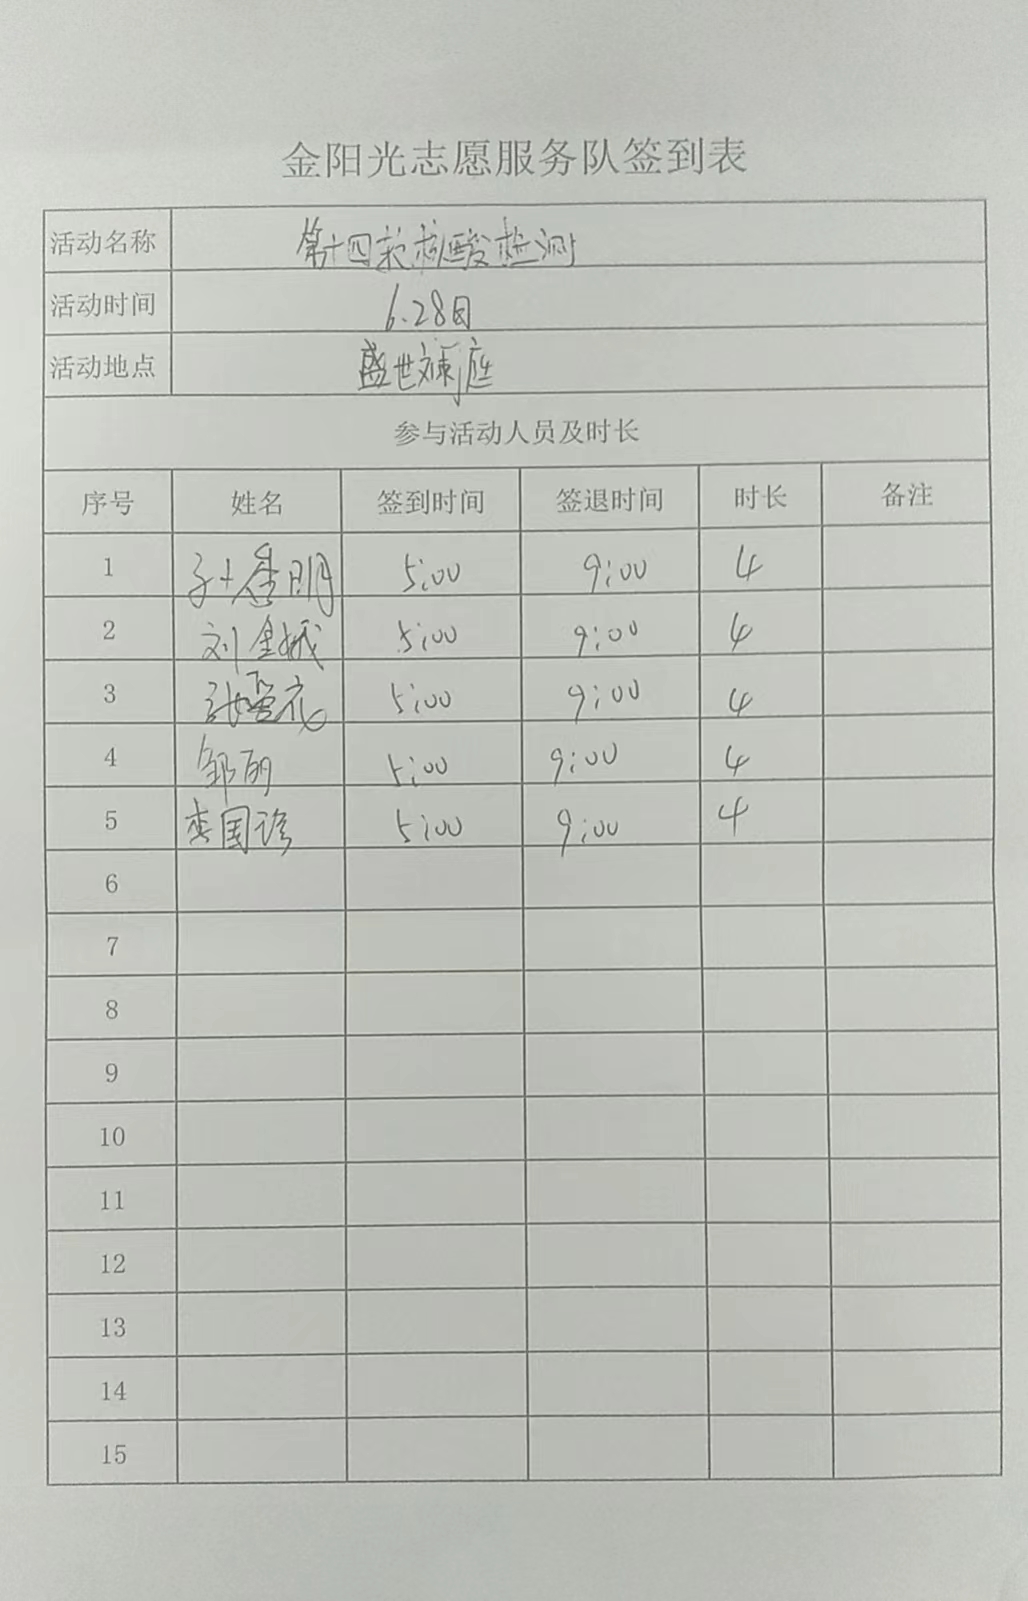 金阳光志愿服务队签到表
活动名称 第十四次核酸检测
活动时间 6.28日
活动地点 盛世 庭
参与活动人员及时长
序号 姓名 签到时间 签退时间 时长 备注
1 明 5:00 9:00 4
2 刘金娥 5:00 9:00 4
3 5:00 9:00 4
4 邹丽 5:00 9:00 4
5 李国珍 5:00 9:00 4
6
7
8
9
10
11
12
13
14
15